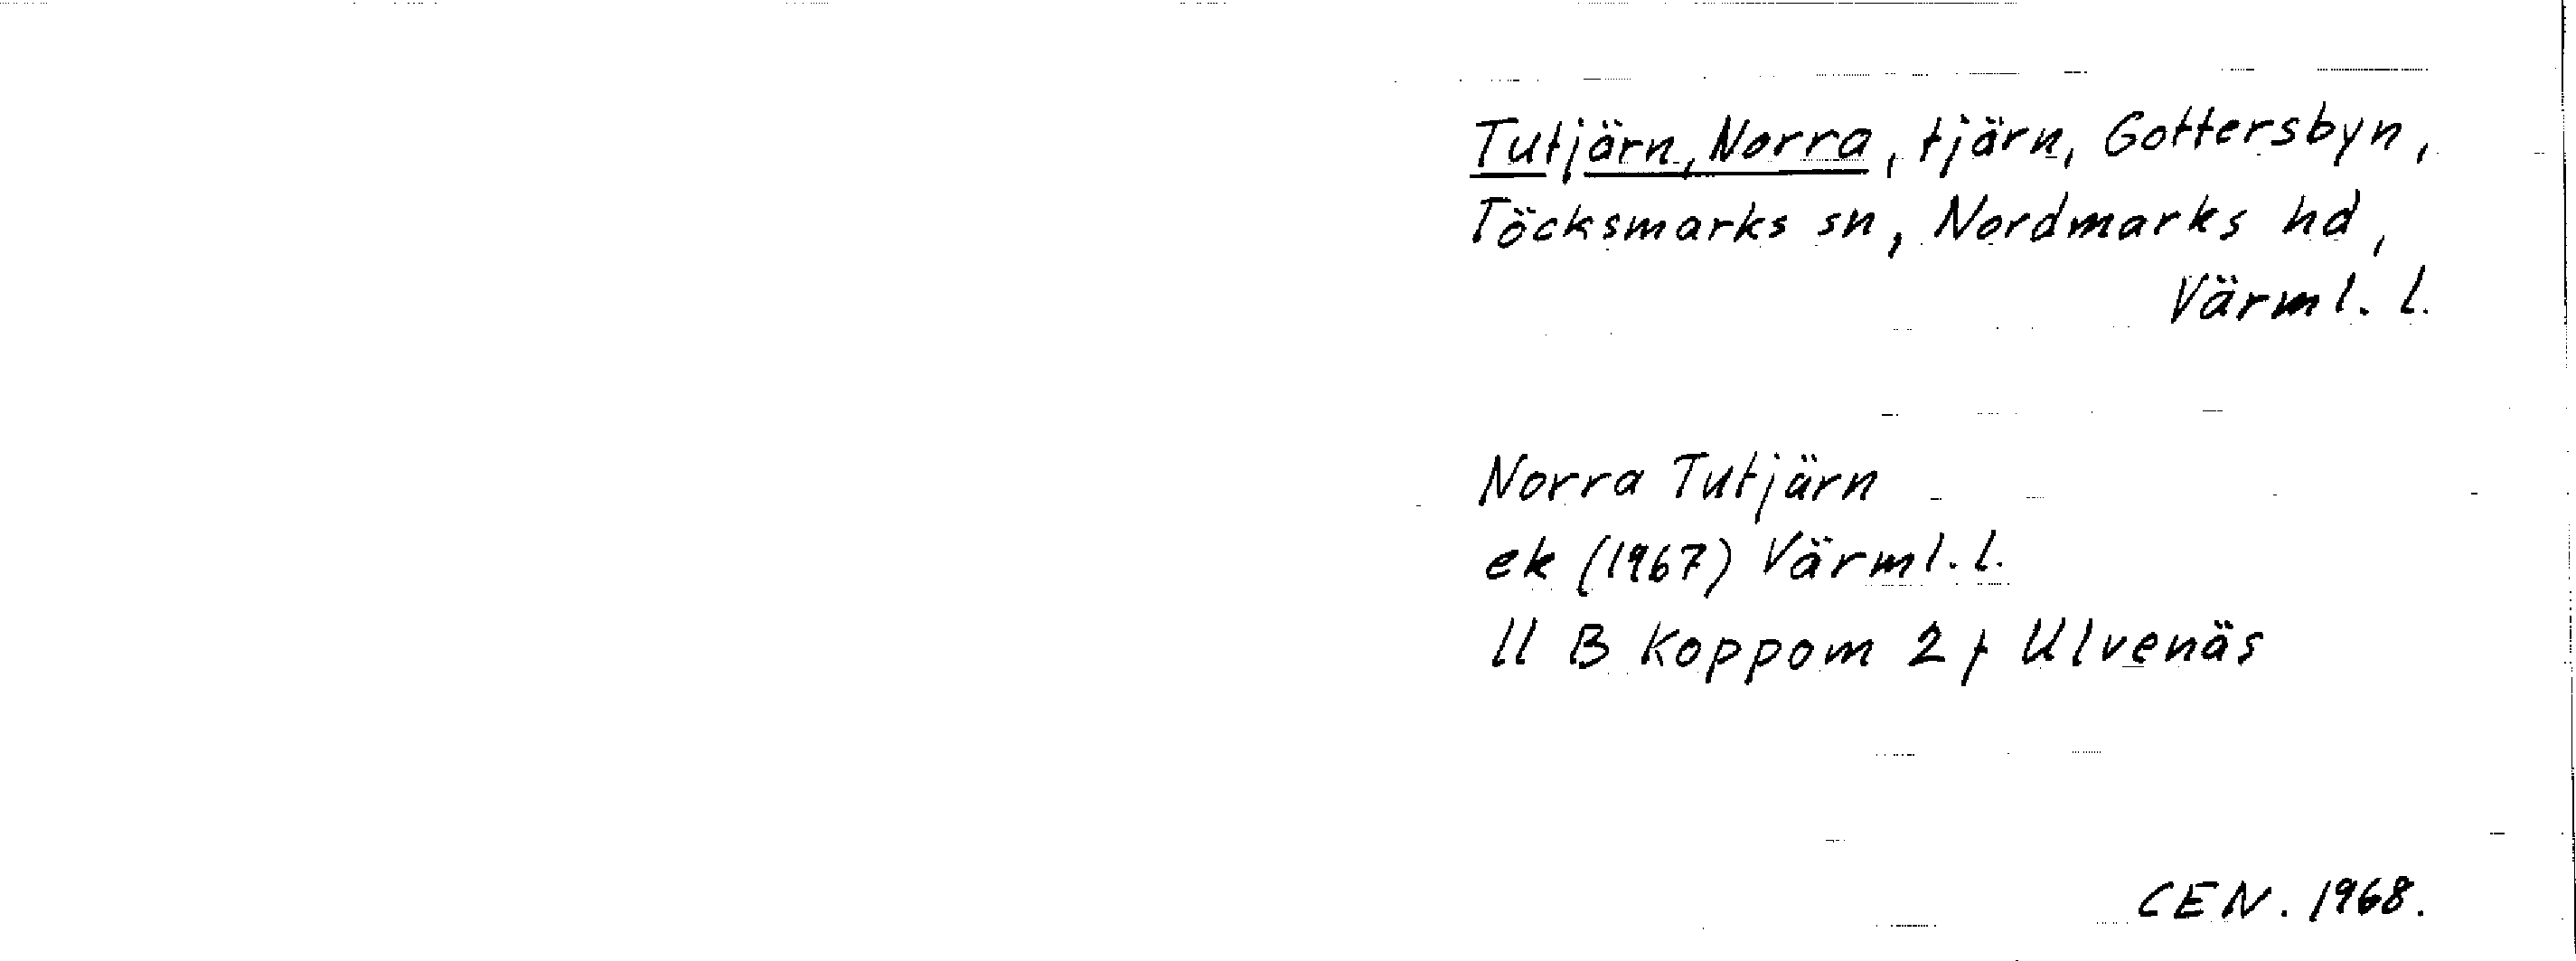 Tutjärn, Norra, tjärn, Gottersbyn,
Töcksmarks sn, Nordmarks hd,
Värml. l.
Norra Tutjärn
ek (1967) Värml. l.
11 B Koppom 2 f Ulvenäs
CEN. 1968.